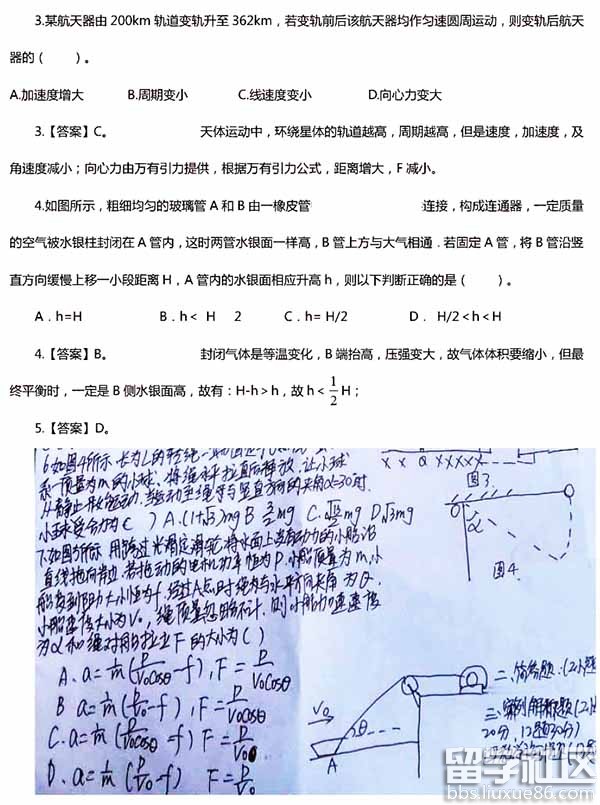 3.某航天器由 200km 轨道变轨升至 362km，若变轨前后该航天器均作匀速圆周运动，则变轨后航天
器的（　　）。
A.加速度增大　B.周期变小　C.线速度变小　D.向心力变大
3.【答案】C。　天体运动中，环绕星体的轨道越高，周期越高，但是速度，加速度，及
角速度减小；向心力由万有引力提供，根据万有引力公式，距离增大，F 减小。
4.如图所示，粗细均匀的玻璃管 A 和 B 由一橡皮管　连接，构成连通器，一定质量
的空气被水银柱封闭在 A 管内，这时两管水银面一样高，B 管上方与大气相通．若固定 A 管，将 B 管沿竖
直方向缓慢上移一小段距离 H，A 管内的水银面相应升高 h，则以下判断正确的是（　　）。
A．h=H　B．h< H　2　C．h= H/2　D． H/2<h<H
4.【答案】B。　封闭气体是等温变化，B 端抬高，压强变大，故气体体积要缩小，但最
终平衡时，一定是 B 侧水银面高，故有：H-h＞h，故 h＜1/2 H；
5.【答案】D。
6.如图4所示 长为L的轻绳一
系一质量为m的小球，将绳水平拉直后释放，让小球
从静止开始运动，当运动至绳子与竖直方向的夹角α=30°时，
小球受合力为（ ） A.(1+√3)mg B 3/2mg C. mg D√3mg
7.如图5所示 用跨过光滑定滑轮 将水面上 动力的小船沿
直线拖向岸边，若拖动的电机功率恒为P，小船质量为m，小
船受到阻力大小恒为f，经过A点时绳为与水平方向夹角为θ，
小船速度大小为V₀，绳质量忽略不计，则小船加速度
为α和绳对船拉力F的大小为（ ）
A、a=1/m(P/V₀cosθ-f)，F=P/V₀cosθ
B a=1/m(P/V₀-f)，F=P/V₀cosθ
C.a=1/m(P/V₀cosθ-f) F=P/V₀
D、a=1/m(P/V₀-f) F=P/V₀
X X Q XXXXX
图3.
O
α
图4.
V₀
θ
A
二、简答题.(2小题
三.
20分，12题30分)
留学社区
bbs.liuxue86.com